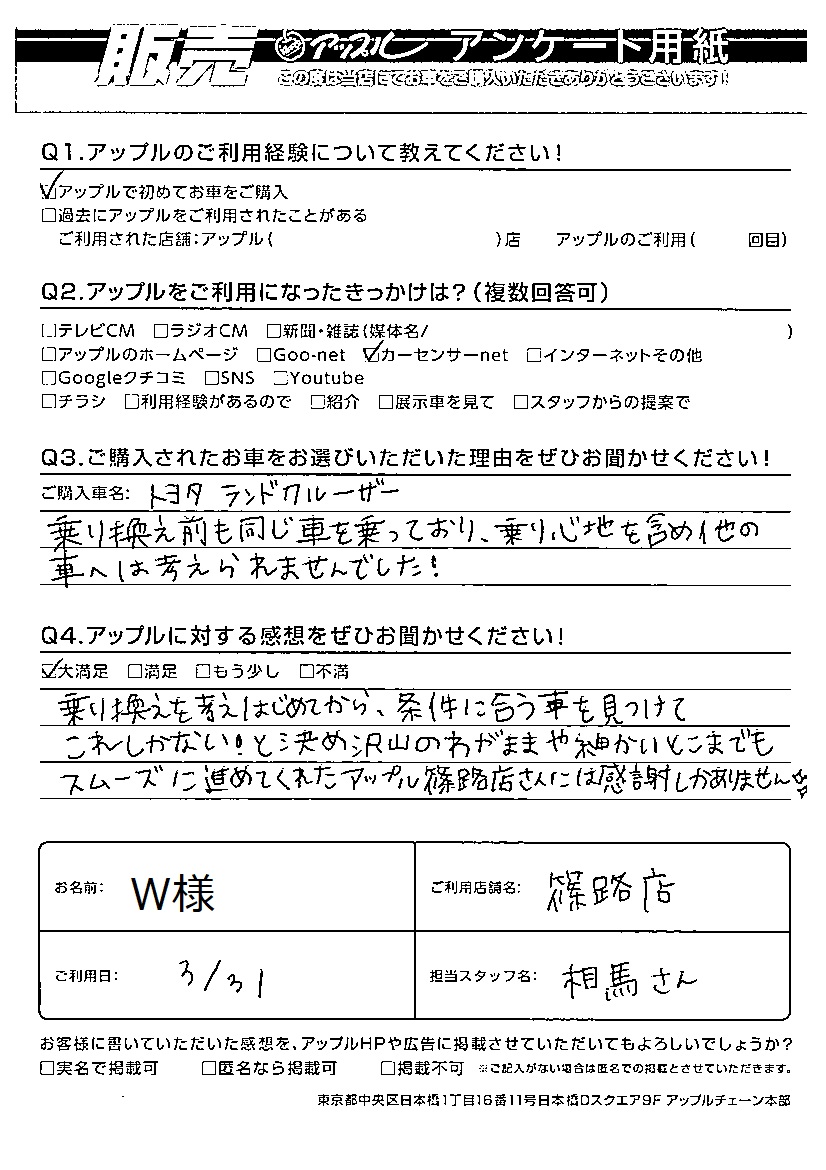 販売 アップル アンケート用紙
この度は当店にてお車をご購入いただきありがとうございます!
Q1.アップルのご利用経験について教えてください!
☑アップルで初めてお車をご購入
□過去にアップルをご利用されたことがある
ご利用された店舗:アップル( )店 アップルのご利用( 回目)
Q2.アップルをご利用になったきっかけは?(複数回答可)
□テレビCM □ラジオCM □新聞・雑誌(媒体名/ )
□アップルのホームページ □Goo-net ☑カーセンサーnet □インターネットその他
□Googleクチコミ □SNS □Youtube
□チラシ □利用経験があるので □紹介 □展示車を見て □スタッフからの提案で
Q3.ご購入されたお車をお選びいただいた理由をぜひお聞かせください!
ご購入車名: トヨタ ランドクルーザー
乗り換え前も同じ車を乗っており、乗り心地を含め他の
車へは考えられませんでした!
Q4.アップルに対する感想をぜひお聞かせください!
☑大満足 □満足 □もう少し □不満
乗り換えを考えはじめてから、条件に合う車を見つけて
これしかない!と決め沢山のわがままや細かいとこまでも
スムーズに進めてくれたアップル篠路店さんには感謝しかありません☆
お名前: W様 ご利用店舗名: 篠路店
ご利用日: 3/31 担当スタッフ名: 相馬さん
お客様に書いていただいた感想を、アップルHPや広告に掲載させていただいてもよろしいでしょうか?
□実名で掲載可 □匿名なら掲載可 □掲載不可 ※ご記入がない場合は匿名での掲載とさせていただきます。
東京都中央区日本橋1丁目16番11号日本橋Dスクエア9F アップルチェーン本部